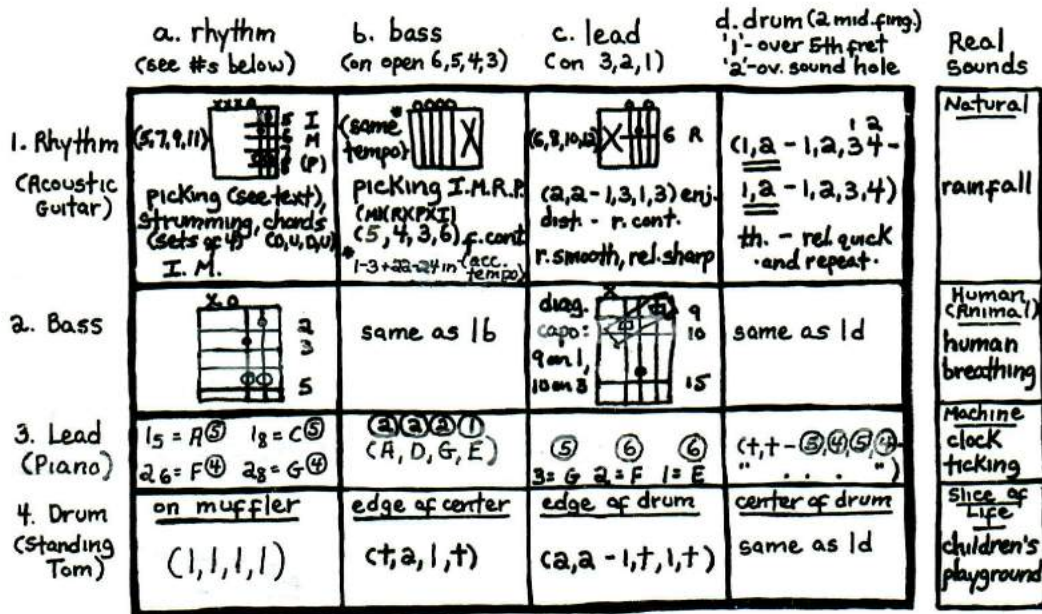 a. rhythm
(see #s below)
b. bass
(on open 6,5,4,3)
c. lead
(on 3,2,1)
d. drum (2 mid.fing.)
'1'-over 5th fret
'2'-ov. sound hole
Real
Sounds
1. Rhythm
(Acoustic
Guitar)
xxxo
(5,7,9,11)
I
M
(P)
picking (see text),
strumming, chords
(sets of 4) (D,U,D,U)
I. M.
oooo
*
(same
tempo)
X
picking I.M.R.P.
(M)(R)(P)(I)
(5,4,3,6) f.cont
* 1-3+22-24 in (acc. tempo)
o o
(6,8,10,12)
X
6 R
(2,2 - 1,3,1,3) enj.
dist. - r. cont.
r. smooth, rel. sharp
1 2
(1,2 - 1,2,3,4 -
1,2 - 1,2,3,4)
th. - rel. quick
·and repeat·
Natural
rainfall
2. Bass
x o
2
3
5
same as 1b
x
diag.
capo:
9 on 1,
10 on 3
9
10
15
same as 1d
Human,
(Animal)
human
breathing
3. Lead
(Piano)
15 = A⑤ 18 = C⑤
26 = F④ 28 = G④
②②②①
(A, D, G, E)
⑤ ⑥ ⑥
3=G 2=F 1=E
(†,† - ⑤,④,⑤,④-
" . . . ")
Machine
clock
ticking
4. Drum
(Standing
Tom)
on muffler
(1,1,1,1)
edge of center
(†,2,1,†)
edge of drum
(2,2 - 1,†,1,†)
center of drum
same as 1d
Slice of
Life
children's
playground